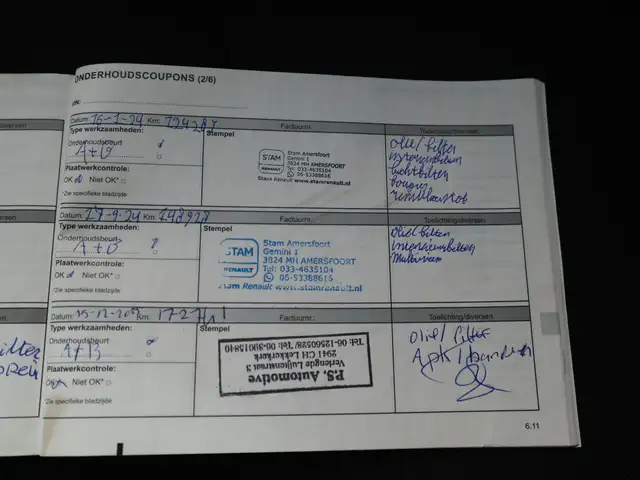 ONDERHOUDSCOUPONS (2/6)
Datum: 16-1-24 Km:
Factuurnr.:
Toelichting/diversen
Type werkzaamheden:
Stempel
Olie/filter
Onderhoudsbeurt
interieurfilter
A+B
luchtfilter
Plaatwerkcontrole:
bougies
OK Niet OK*
remvloeistof
*Zie specifieke bladzijde
STAM
RENAULT
Stam Amersfoort
Gemini 1
3824 MH AMERSFOORT
Tel: 033-4635104
06-53388616
Stam Renault www.stamrenault.nl
Datum: 27-9-24 Km: 148928
Factuurnr.:
Toelichting/diversen
Type werkzaamheden:
Stempel
Olie/filter
Onderhoudsbeurt
interieurfilter
A+B
Plaatwerkcontrole:
OK Niet OK*
*Zie specifieke bladzijde
STAM
RENAULT
Stam Amersfoort
Gemini 1
3824 MH AMERSFOORT
Tel: 033-4635104
06-53388616
Stam Renault www.stamrenault.nl
Datum: Km:
Factuurnr.:
Toelichting/diversen
Type werkzaamheden:
Stempel
Olie/filter
Onderhoudsbeurt
Apk/banden
A+B
Plaatwerkcontrole:
OK Niet OK*
*Zie specifieke bladzijde
P.S. Automotive
Verlengde Luijenstraat 3
2941 CH Lekkerkerk
6.11